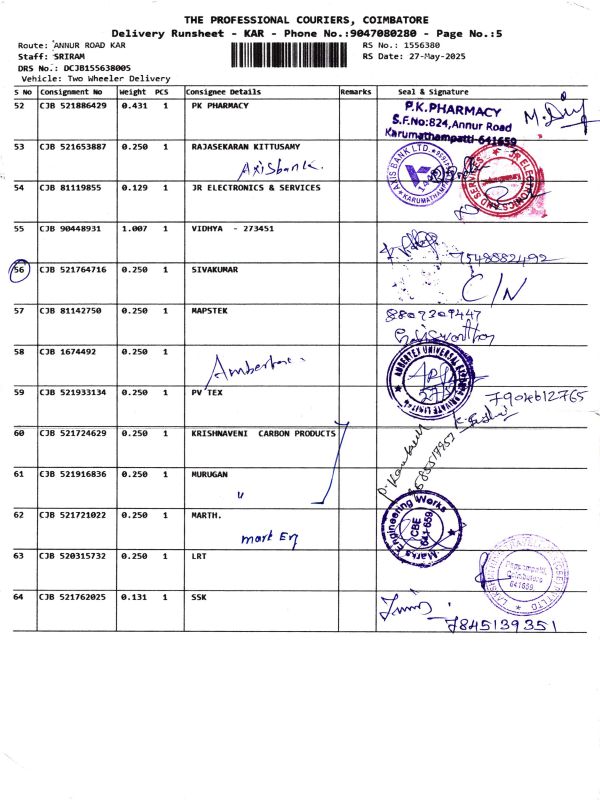 THE PROFESSIONAL COURIERS, COIMBATORE
Delivery Runsheet - KAR - Phone No.:9047080280 - Page No.:5
Route: ANNUR ROAD KAR RS No.: 1556380
Staff: SRIRAM RS Date: 27-May-2025
DRS No.: DCJB155638005
Vehicle: Two Wheeler Delivery
S No Consignment No Weight PCS Consignee Details Remarks Seal & Signature
52 CJB 521886429 0.431 1 PK PHARMACY
P.K.PHARMACY
S.F.No:824,Annur Road
Karumathampatti-641659
53 CJB 521653887 0.250 1 RAJASEKARAN KITTUSAMY
Axisbank.
AXIS BANK LTD.
54 CJB 81119855 0.129 1 JR ELECTRONICS & SERVICES
JR ELECTRONICS AND SERVICES
55 CJB 90448931 1.007 1 VIDHYA - 273451
7548882492
56 CJB 521764716 0.250 1 SIVAKUMAR
C/N
57 CJB 81142750 0.250 1 MAPSTEK
8807209447
58 CJB 1674492 0.250 1
59 CJB 521933134 0.250 1 PV TEX
7904612765
60 CJB 521724629 0.250 1 KRISHNAVENI CARBON PRODUCTS
61 CJB 521916836 0.250 1 MURUGAN
"
62 CJB 521721022 0.250 1 MARTH.
mark En
Marks Engineering Works
CBE
641 659
63 CJB 520315732 0.250 1 LRT
Coimbatore
641659
64 CJB 521762025 0.131 1 SSK
7845139351